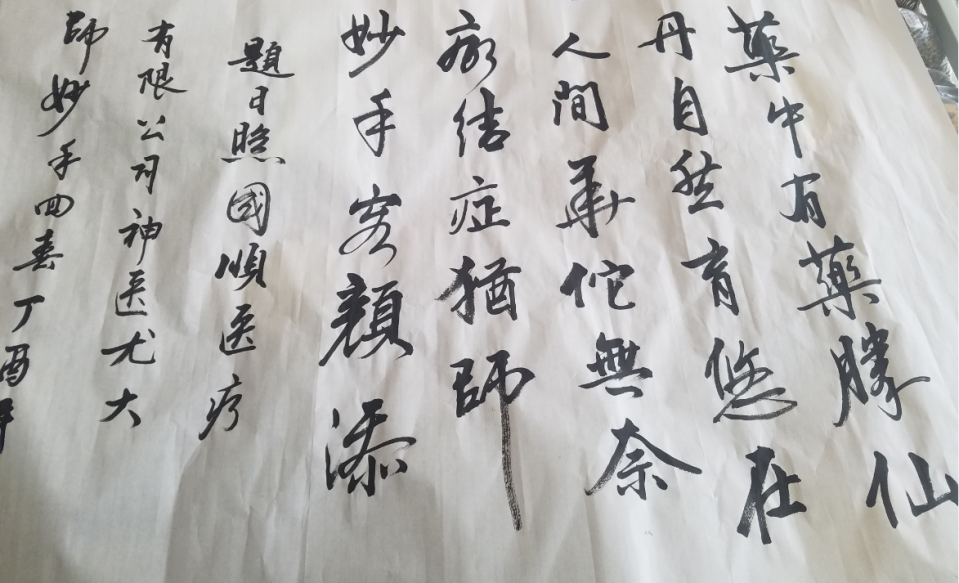 藥中有藥勝仙
丹自然育悠在
人間華佗無奈
病结症猶師
妙手容顏添
題日照國順医疗
有限公司神医尤大
師妙手回春丁酉年